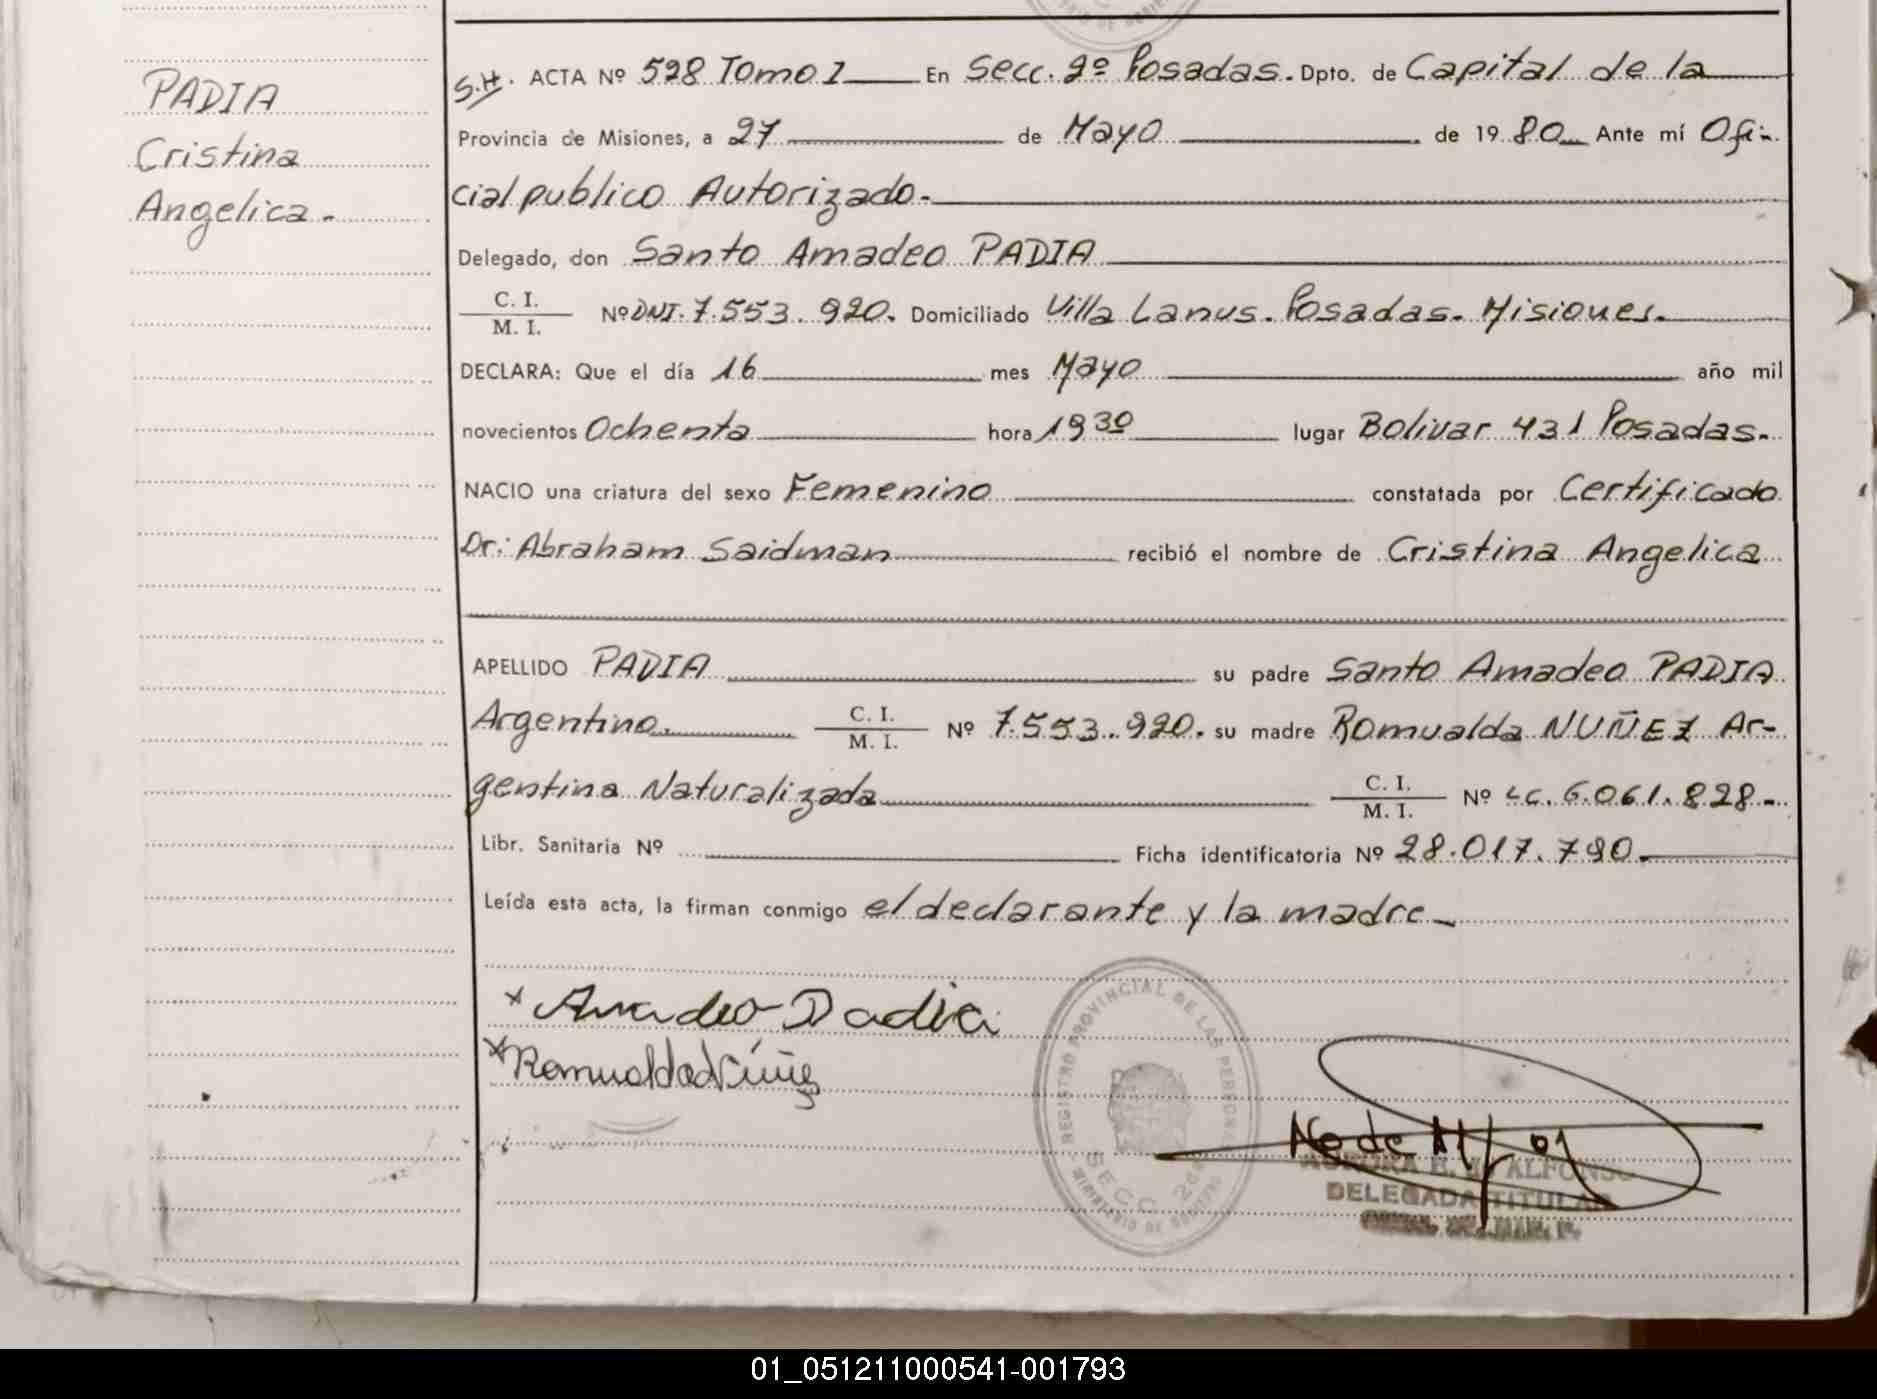 PADIA
Cristina
Angelica.
S.H. ACTA Nº 528 Tomo I En Secc. 2º Posadas. Dpto. de Capital de la
Provincia de Misiones, a 27 de Mayo de 1980 Ante mí Ofi-
cial publico Autorizado.
Delegado, don Santo Amadeo PADIA
C. I.
M. I. Nº DNI. 7.553.920. Domiciliado Villa Lanus. Posadas. Misiones.
DECLARA: Que el día 16 mes Mayo año mil
novecientos Ochenta hora 1930 lugar Bolivar 431 Posadas.
NACIO una criatura del sexo Femenino constatada por Certificado
Dr: Abraham Saidman recibió el nombre de Cristina Angelica
APELLIDO PADIA su padre Santo Amadeo PADIA
Argentino. C. I. M. I. Nº 7.553.920. su madre Romualda NUÑEZ Ar-
gentina Naturalizada C. I. M. I. Nº LC. 6.061.828-
Libr. Sanitaria Nº Ficha identificatoria Nº 28.017.790.
Leída esta acta, la firman conmigo el declarante y la madre
x Amadeo Padia
x Romualda Núñez
REGISTRO PROVINCIAL DE LAS PERSONAS
SECC 2da
MINISTERIO DE GOBIERNO
AURORA E. ALFONSO
DELEGADA TITULAR
01_051211000541-001793